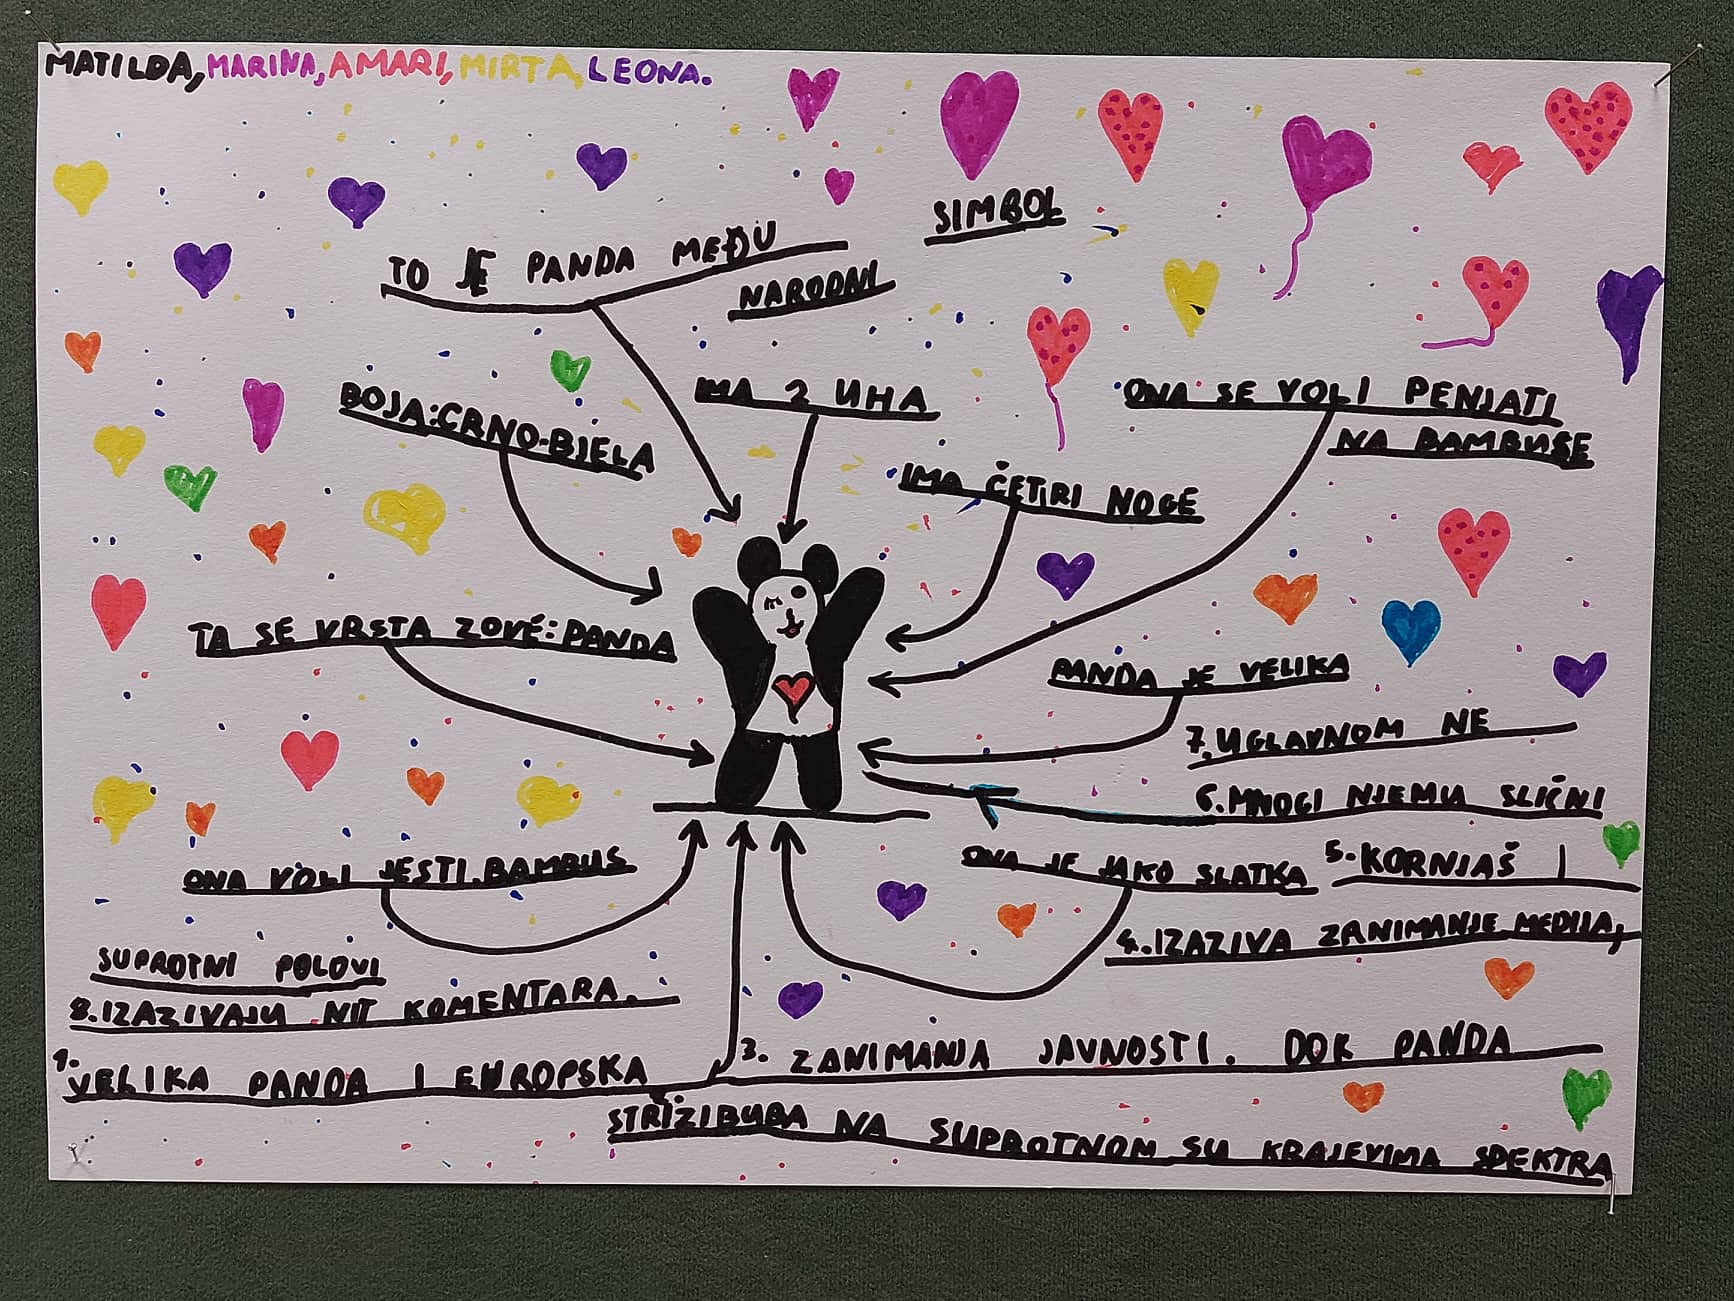 MATILDA, MARINA, AMARI, MIRTA, LEONA.
SIMBOL
TO JE PANDA MEĐU
NARODNI
BOJA: CRNO-BJELA
IMA 2 UHA
ONA SE VOLI PENJATI
NA BAMBUSE
IMA ČETIRI NOGE
TA SE VRSTA ZOVE: PANDA
PANDA JE VELIKA
7. UGLAVNOM NE
6. MNOGI NJEMU SLIČNI
ONA VOLI JESTI BAMBUS
ONA JE JAKO SLATKA
5. KORNJAŠ I
4. IZAZIVA ZANIMANJE MEDIJA,
SUPROTNI POLOVI
8. IZAZIVAJU NIT KOMENTARA.
1. VELIKA PANDA I EUROPSKA
3. ZANIMANJA JAVNOSTI. DOK PANDA
STRIŽIBUBA NA SUPROTNOM SU KRAJEVIMA SPEKTRA